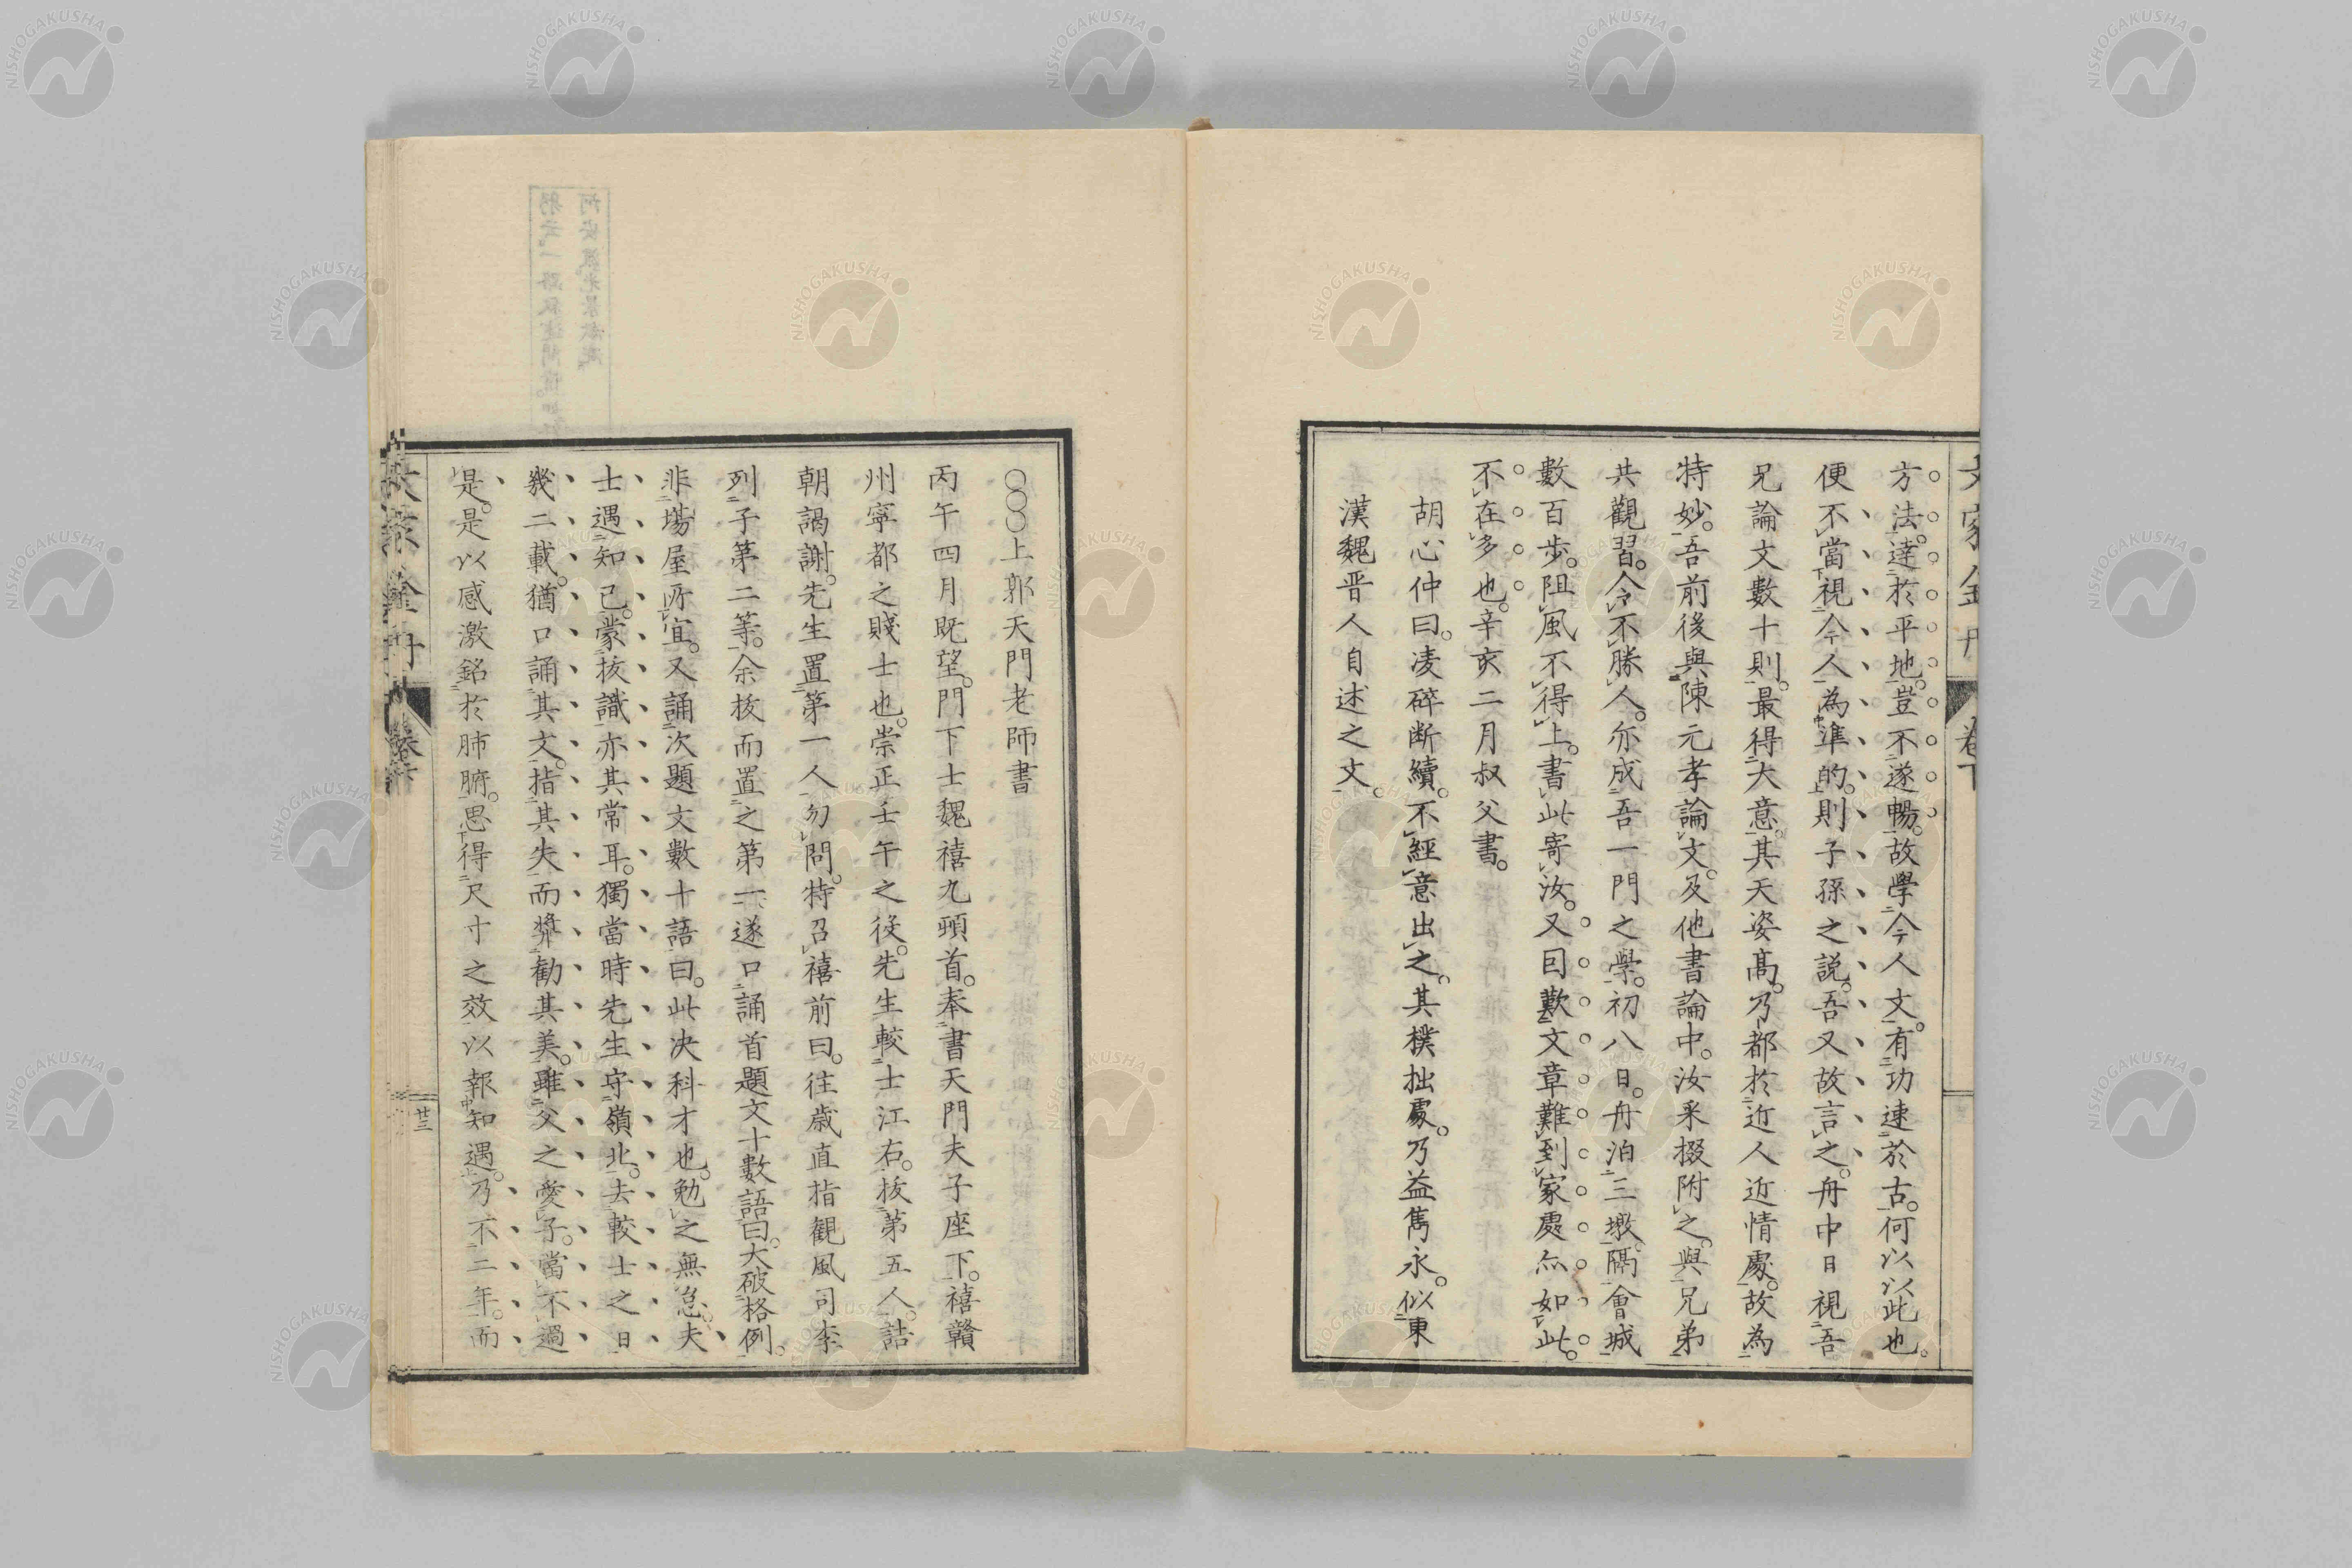 方法。達於平地。豈不遂暢。故學今人文。有功速於古。何以以此也。
便不當視今人為準的。則子孫之説。吾又故言之。舟中日視吾
兄論文數十則。最得大意。其天姿高。乃都於近人近情處。故為
特妙。吾前後與陳元孝論文。及他書論中。汝采掇附之。與兄弟
共觀習。今不勝人。亦成吾一門之學。初八日。舟泊三墩。隔會城
數百步。阻風不得上。書此寄汝。又囙歎文章難到家處亦如此。
不在多也。辛亥二月叔父書。
胡心仲曰。凌碎断續。不經意出之。其樸拙處。乃益雋永。似東
漢魏晋人自述之文。
○○○上郭天門老師書
丙午四月既望。門下士魏禧九頭首。奉書天門夫子座下。禧贛
州寧都之賤士也。崇正壬午之役。先生較士江右。拔第五人。詰
朝謁謝。先生置第一人勿問。特召禧前曰。往歳直指観風司李
列子第二等。余拔而置之第一。遂口誦首題文十數語曰。大破格例。
非場屋所宜。又誦次題文數十語曰。此决科才也。勉之無怠。夫
士遇知己。蒙拔識。亦其常耳。獨當時先生守嶺北。去較士之日
幾二載。猶口誦其文。指其失而奨勸其美。雖父之愛子。當不過
是。是以感激銘於肺腑。思得尺寸之效以報知遇。乃不二年。而
文家金丹
卷下
廿三
NISHOGAKUSHA